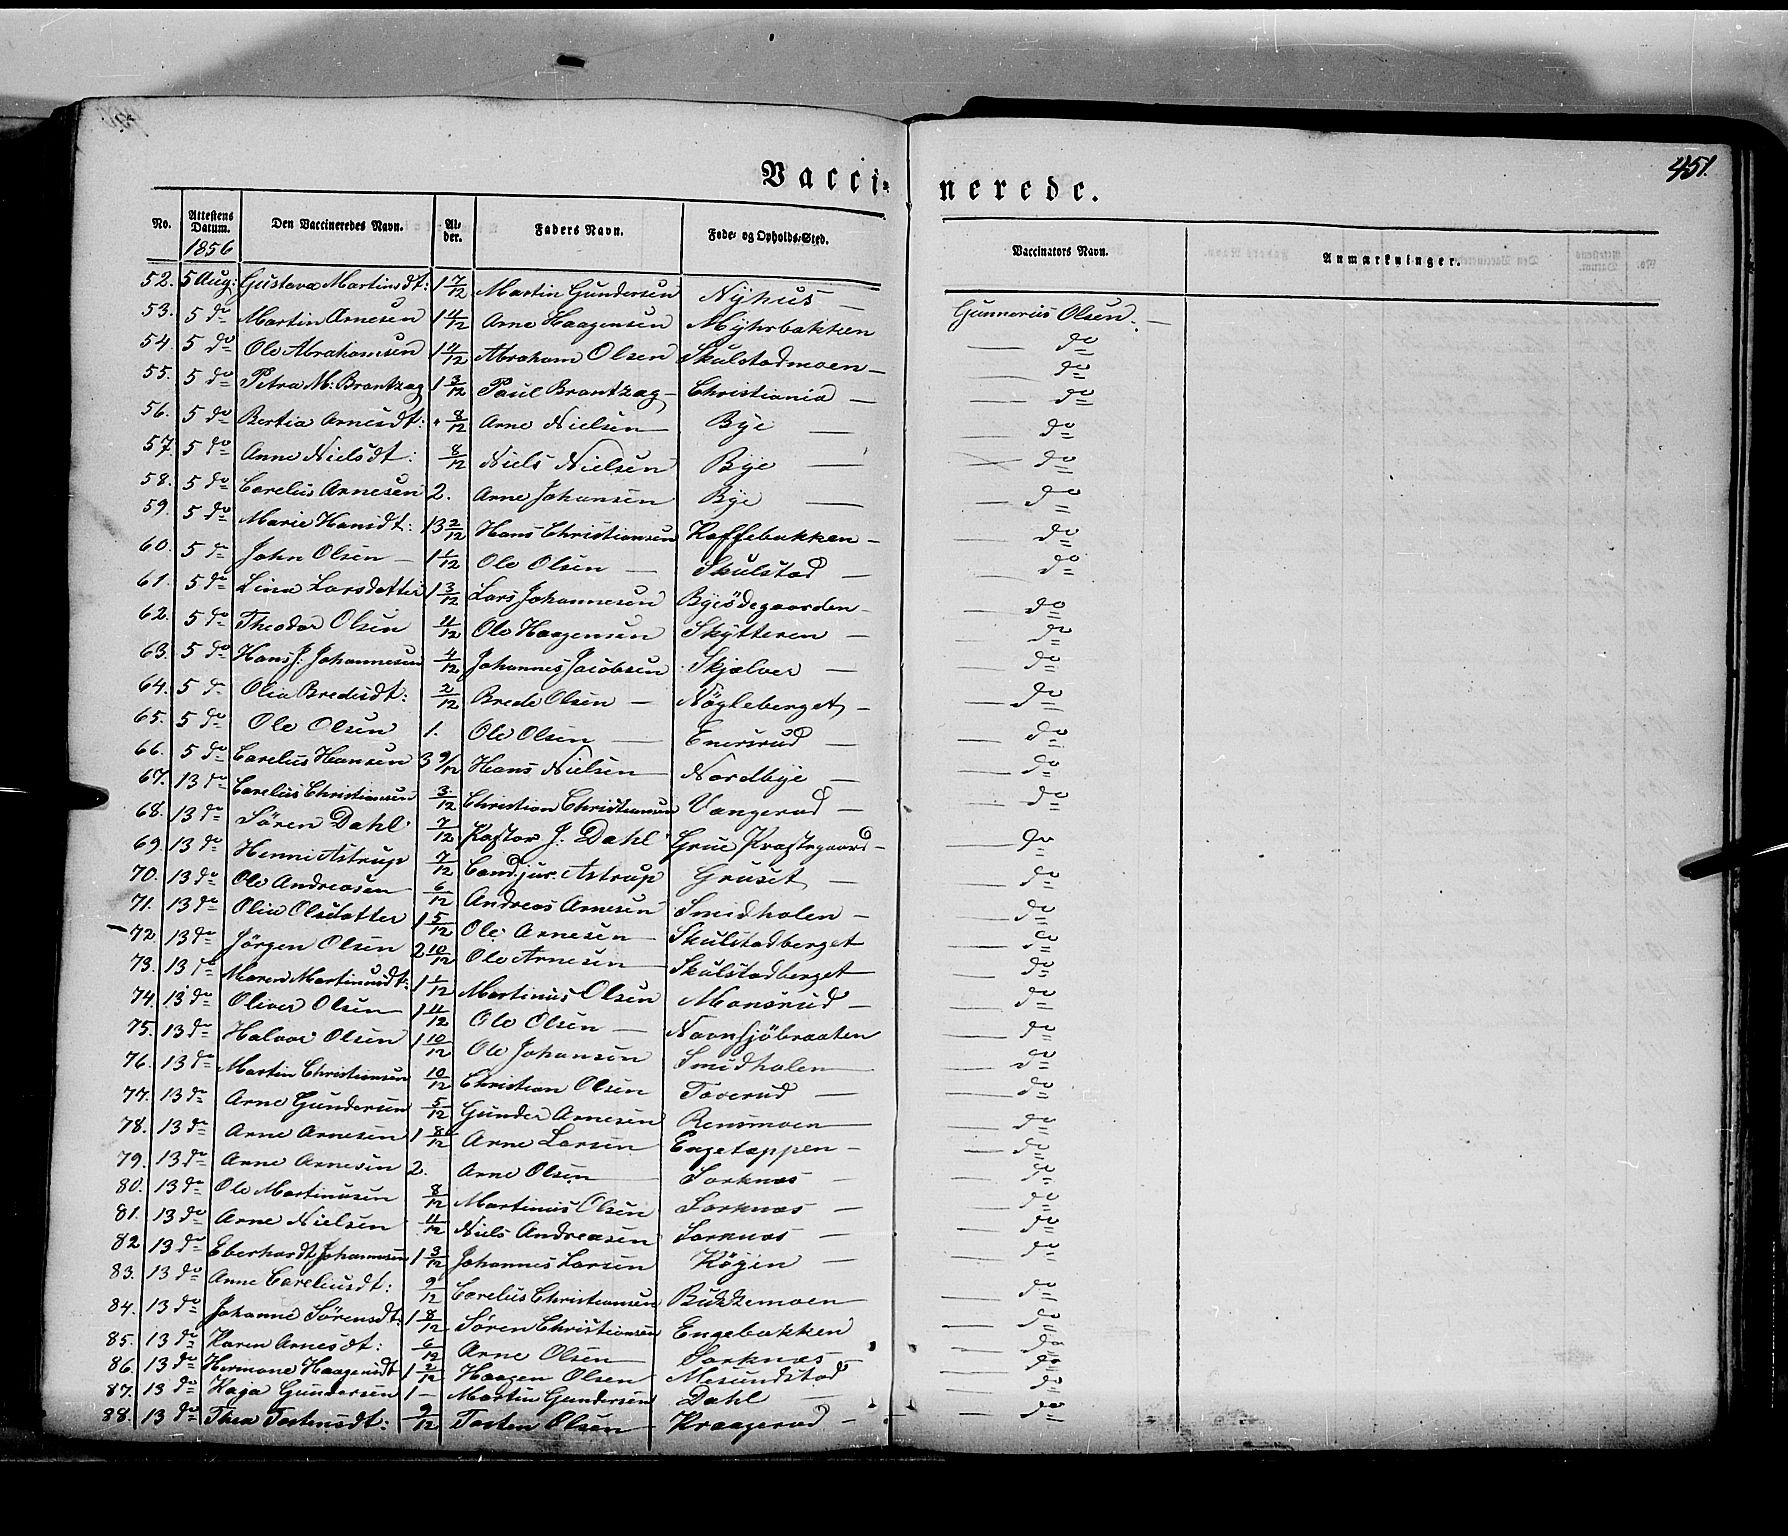 451.
Vaccinerede.
No. Attestens Datum. Den Vaccineredes Navn. Alder. Faders Navn. Føde- og Opholds-Sted. Vaccinators Navn. Anmærkninger.
1856
52. 5 Aug: Gustava Martinsdt: 1 7/12 Martin Gundersen Nyhus — Gunnerius Olsen. —
53. 5 do Martin Arnesen 1 4/12 Arne Haagensen Myhrbakken — do
54. 5 do Ole Abrahamsen 1 4/12 Abraham Olsen Skulstadmoen — — do
55. 5 do Petra M: Brantzæg 1 3/12 Paul Brantzæg — Christiania — — do
56. 5 do Bertia Arnesdt: " 8/12 Arne Nielsen — Bye — — do
57. 5 do Anne Nielsdt: 8/12 Niels Nielsen Bye — — do
58. 5 do Carelius Arnesen 2. Arne Johansen Bye — — do
59. 5 do Marie Hansdt: 13 2/12 Hans Christiansen Kaffebakken — — do
60. 5 do John Olsen — 1 1/12 Ole Olsen — Skulstad — — do
61. 5 do Lina Larsdatter 1 3/12 Lars Johannesen Byeødegaarden — — do
62. 5 do Theodor Olsen 4/12 Ole Haagensen Skytteren — — do
63. 5 do Hans J. Johannesen 4/12 Johannes Jacobsen Skjælver — — do
64. 5 do Olia Bredesdt: 2/12 Brede Olsen — Nøgleberget — — do
65. 5 do Ole Olsen 1. Ole Olsen — Enersrud — — do
66. 5 do Carelius Hansen 3 9/12 Hans Nielsen Nordbye — — do
67. 13 do Carelius Christiansen 3/12 Christian Christiansen Vangerud — — do
68. 13 do Søren Dahl 7/12 Pastor J. Dahl Grue Præstegaard — — do
69. 13 do Henni Astrup 7/12 Cand. jur. Astrup Gruset — — do
70. 13 do Ole Andreasen 6/12 Andreas Arnesen Smidholen — — do
71. 13 do Olia Olsdatter 1 5/12 Ole Arnesen — Skulstadberget — do
72. 13 do Jörgen Olsen 2 10/12 Ole Arnesen — Skulstadberget — do
73. 13 do Maren Martinusdt: 1 1/12 Martinus Olsen Monsrud — — do
74. 13 do Oliver Olsen — 1 4/12 Ole Olsen — Navnsjöbraaten — do
75. 13 do Halvor Olsen 1 10/12 Ole Johansen Smidholen — — do
76. 13 do Martin Christiansen 10/12 Christian Olsen Taverud — — do
77. 13 do Arne Gundersen 5/12 Gunder Arnesen Rensmoen — — do
78. 13 do Arne Arnesen 1 8/12 Arne Larsen Engetappen — — do
79. 13 do Arne Arnesen 2. Arne Olsen — Sorknæs — — do
80. 13 do Ole Martinusen 8/12 Martinus Olsen Sorknæs — — do
81. 13 do Arne Nielsen 4/12 Niels Andreasen Sorknæs — — do
82 13 do Eberhardt Johannesen 1 3/12 Johannes Larsen Køgen — — do
83. 13 do Anne Careliusdt: 9/12 Carelius Christiansen — do
84. 13 do Johanne Sørensdt: 1 8/12 Søren Christiansen Engebakken — do
85. 13 do Karen Arnesdt: 6/12 Arne Olsen — Sorknæs — — do
86. 13 do Hermane Haagensdt 1 2/12 Haagen Olsen Mesundstad — do
87. 13 do Kaja Gundersen 1 — Martin Gundersen Dahl — — do
88. 13 do Thea Tostensdt: 9/12 Tosten Olsen — Kraagerud — — do